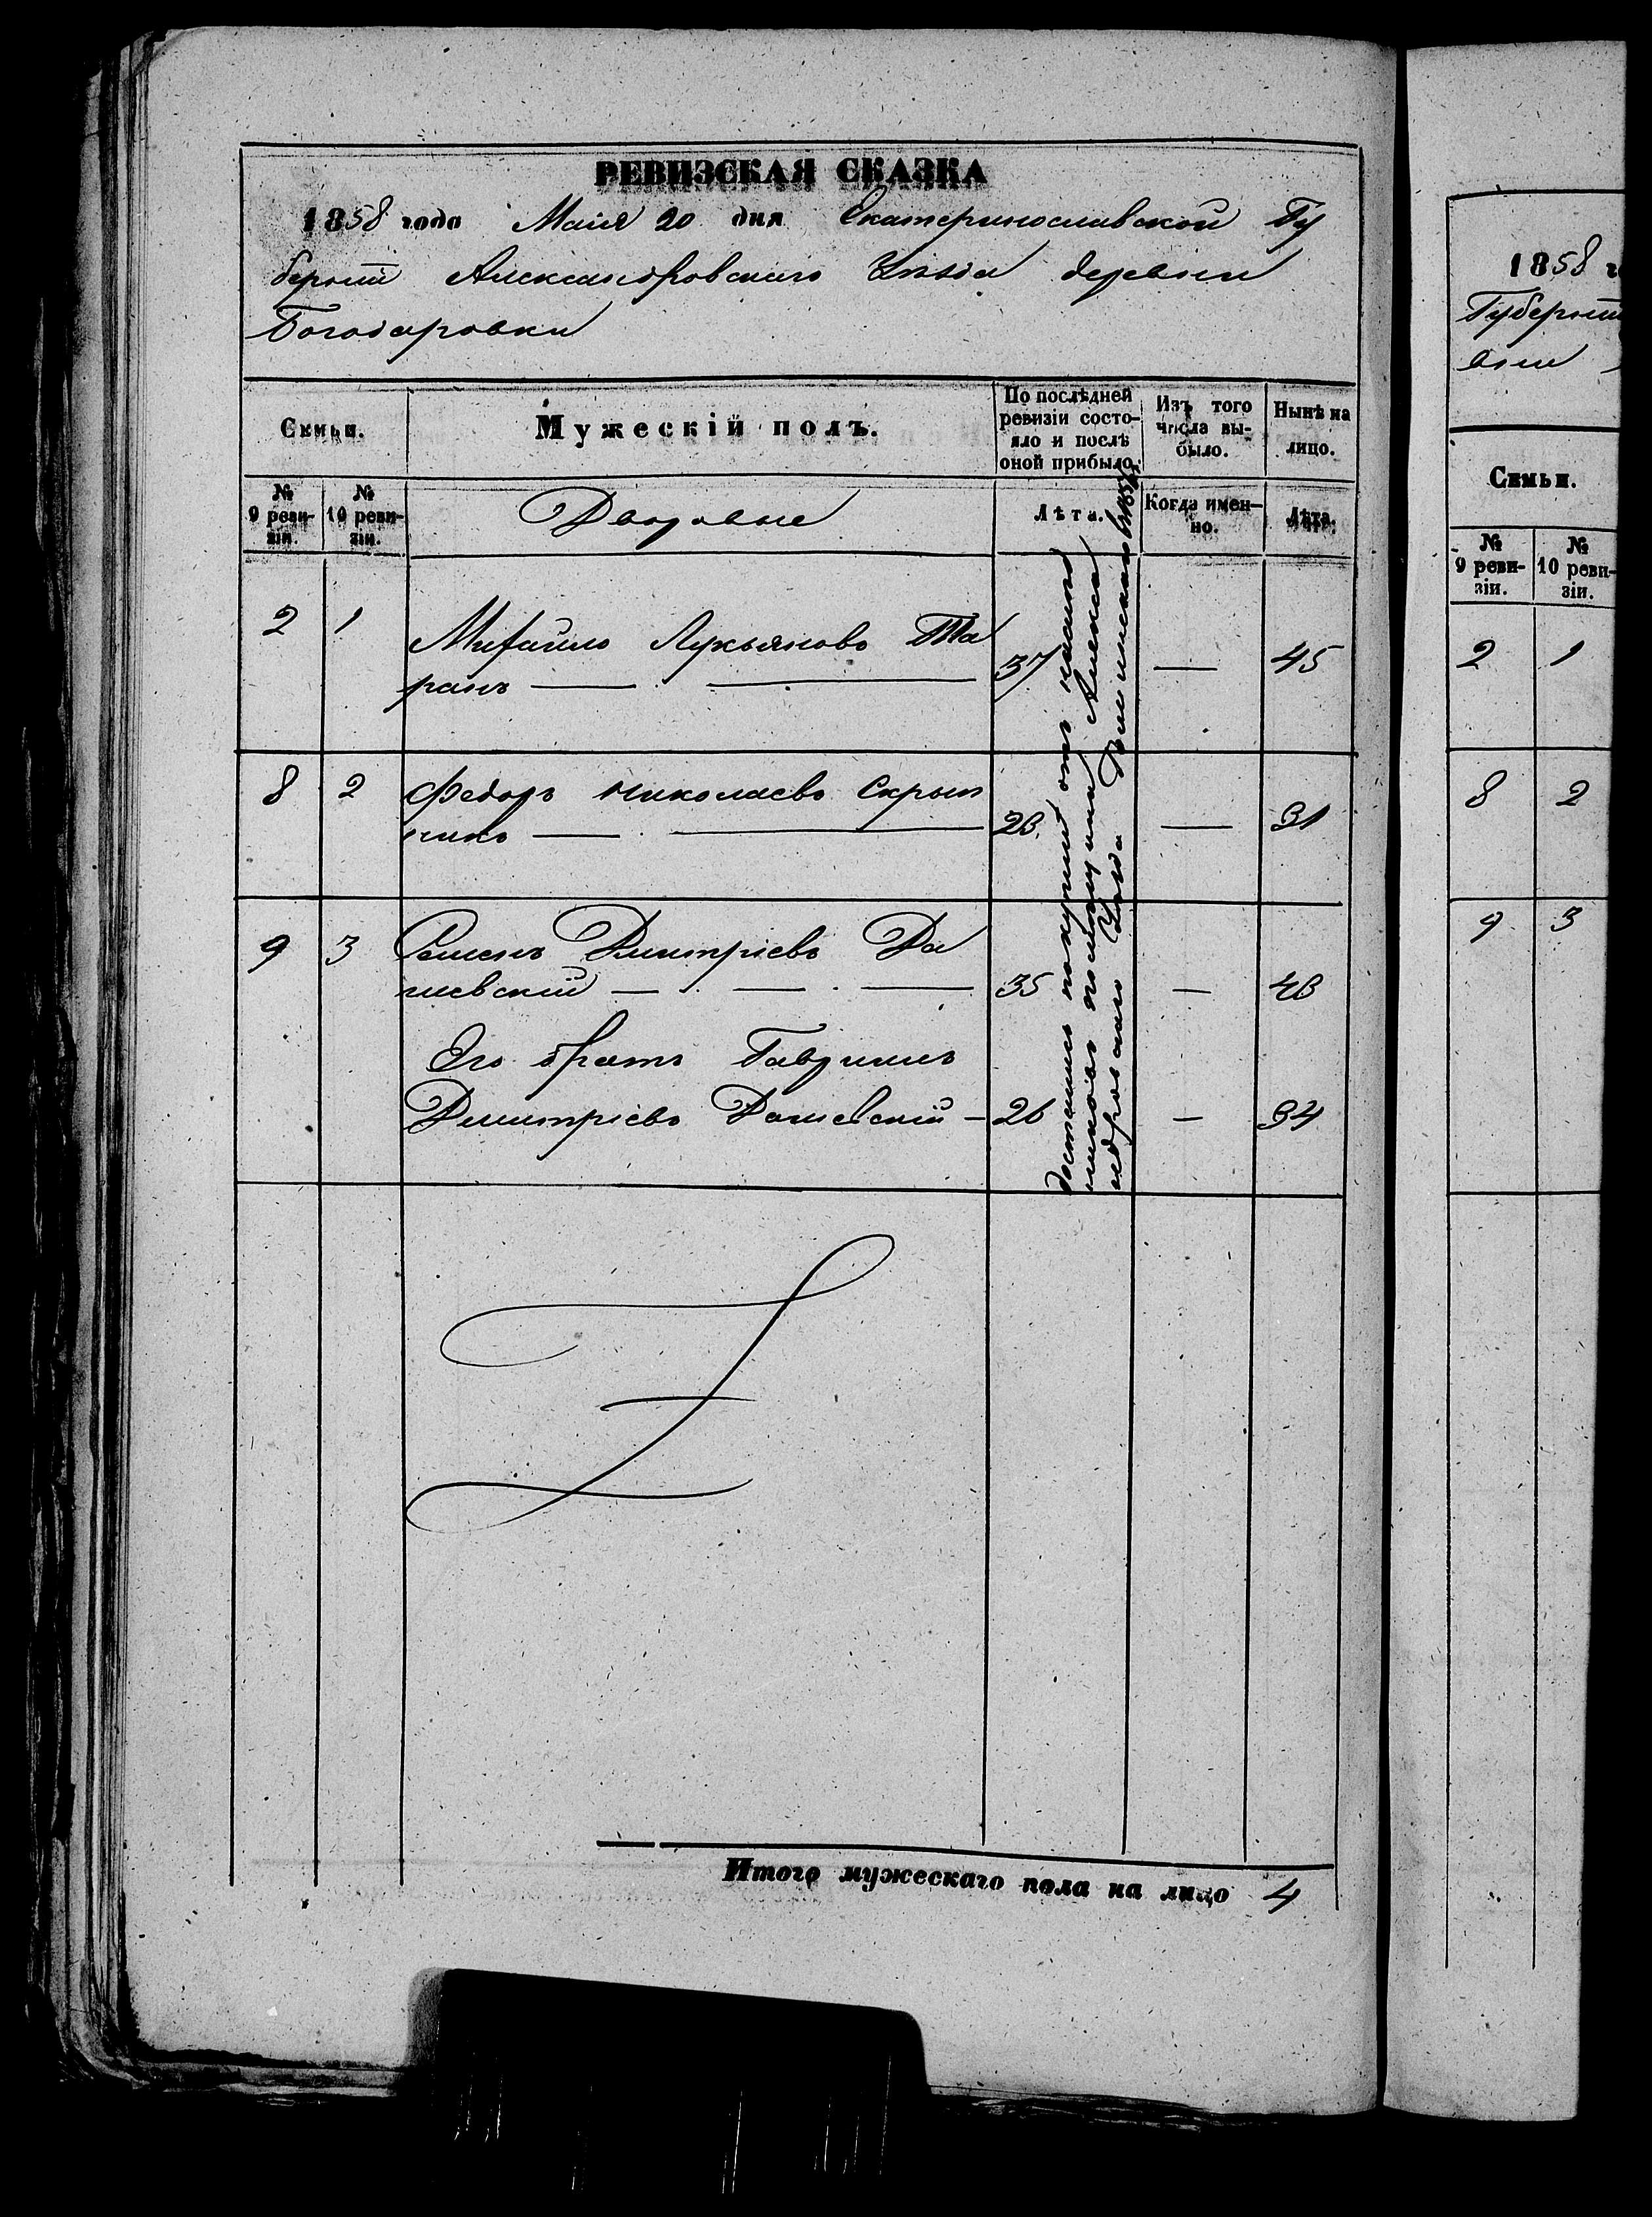 РЕВИЗСКАЯ СКАЗКА
1858 года Маія 20 дня Екатеринославской Гу
берніи Александровскаго Уѣзда деревни
Богодаровки
Семьи.
Мужескій полъ.
По послѣдней ревизіи состояло и послѣ оной прибыло.
Изъ того числа выбыло.
Нынѣ на лицо.
№ 9 ревизіи.
№ 10 ревизіи.
Дворовые
Лѣта.
Когда именно.
Лѣта.
2 1 Михайло Лукьяновъ Та
ранъ 37 — 45
8 2 Федоръ Николаевъ Скрып
никъ 23. — 31
9 3 Семенъ Дмитріевъ Да
нѣвскій 35 — 43
Его братъ Гаврилъ
Дмитріевъ Даневскій 26 — 34
достались покупкою отъ
помѣщика Алекса
ндровскаго Уѣзда
Итого мужескаго пола на лицо 4
1858 г
Губерніи
вни
Семьи.
№ 9 ревизіи.
№ 10 ревизіи.
2 1
8 2
9 3